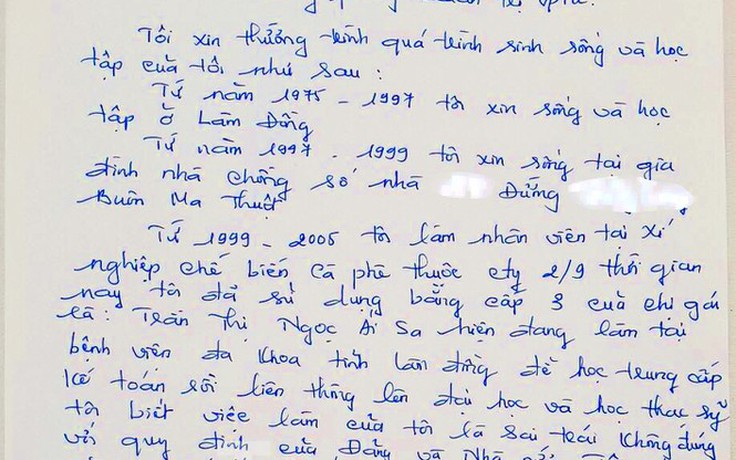 Tôi xin thường trình quá trình sinh sống và học
tập của tôi như sau :
Từ năm 1975 - 1997 tôi xin sống và học
tập ở Lâm Đồng
Từ năm 1997 - 1999 tôi xin sống tại gia
đình nhà chồng số nhà Đường
Buôn Ma Thuột
Từ 1999 - 2005 tôi làm nhân viên tại xí
nghiệp chế biến cà phê thuộc cty 2/9 thời gian
này tôi đã sử dụng bằng cấp 3 của chị gái
là : Trần Thị Ngọc Ái Sa hiện đang làm tại
bệnh viện đa khoa tỉnh lâm đồng để học trung cấp
kế toán rồi liên thông lên đại học và học thạc sỹ
tôi biết việc làm của tôi là sai trái không đúng
với quy định của Đảng và Nhà